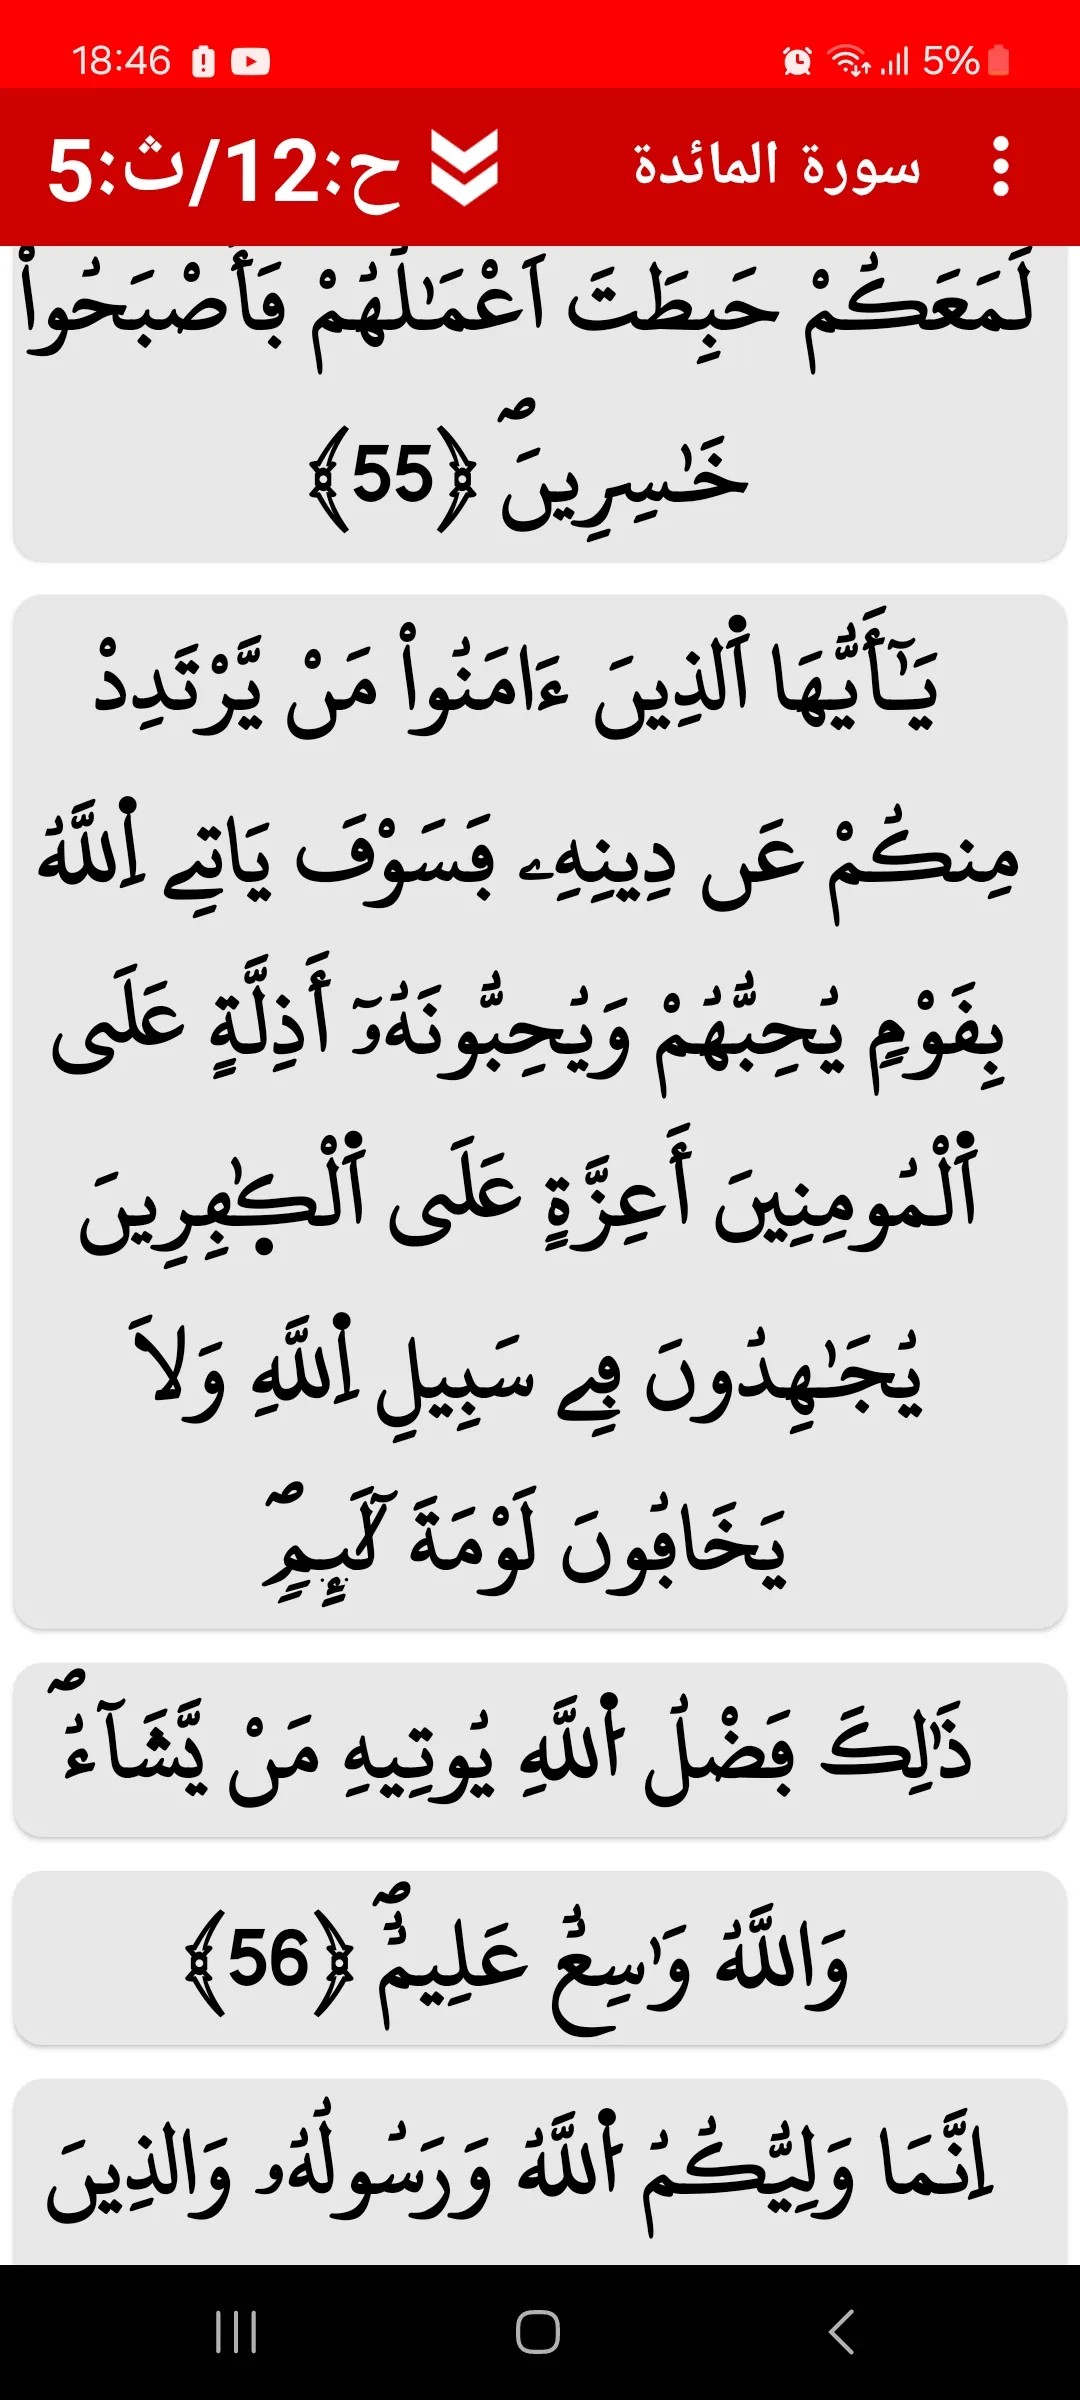 18:46 5%
سورة المائدة ح:12/ث:5
لَمَعَكُمْ حَبِطَتَ اَعْمَٰلُهُمْ فَأَصْبَحُواْ
خَٰسِرِينَۖ ﴿55﴾
يَٰٓأَيُّهَا اَ۬لذِينَ ءَامَنُواْ مَنْ يَّرْتَدِدْ
مِنكُمْ عَن دِينِهِۦ فَسَوْفَ يَاتِے اِ۬للَّهُ
بِقَوْمٖ يُحِبُّهُمْ وَيُحِبُّونَهُۥٓ أَذِلَّةٍ عَلَى
اَ۬لْمُومِنِينَ أَعِزَّةٍ عَلَى اَ۬لْكٰ۪فِرِينَ
يُجَٰهِدُونَ فِے سَبِيلِ اِ۬للَّهِ وَلَا
يَخَافُونَ لَوْمَةَ لَآئِمٖۖ
ذَٰلِكَ فَضْلُ اُ۬للَّهِ يُوتِيهِ مَنْ يَّشَآءُۖ
وَاللَّهُ وَٰسِعٌ عَلِيمٌۖ ﴿56﴾
اِنَّمَا وَلِيُّكُمُ اُ۬للَّهُ وَرَسُولُهُۥ وَالذِينَ